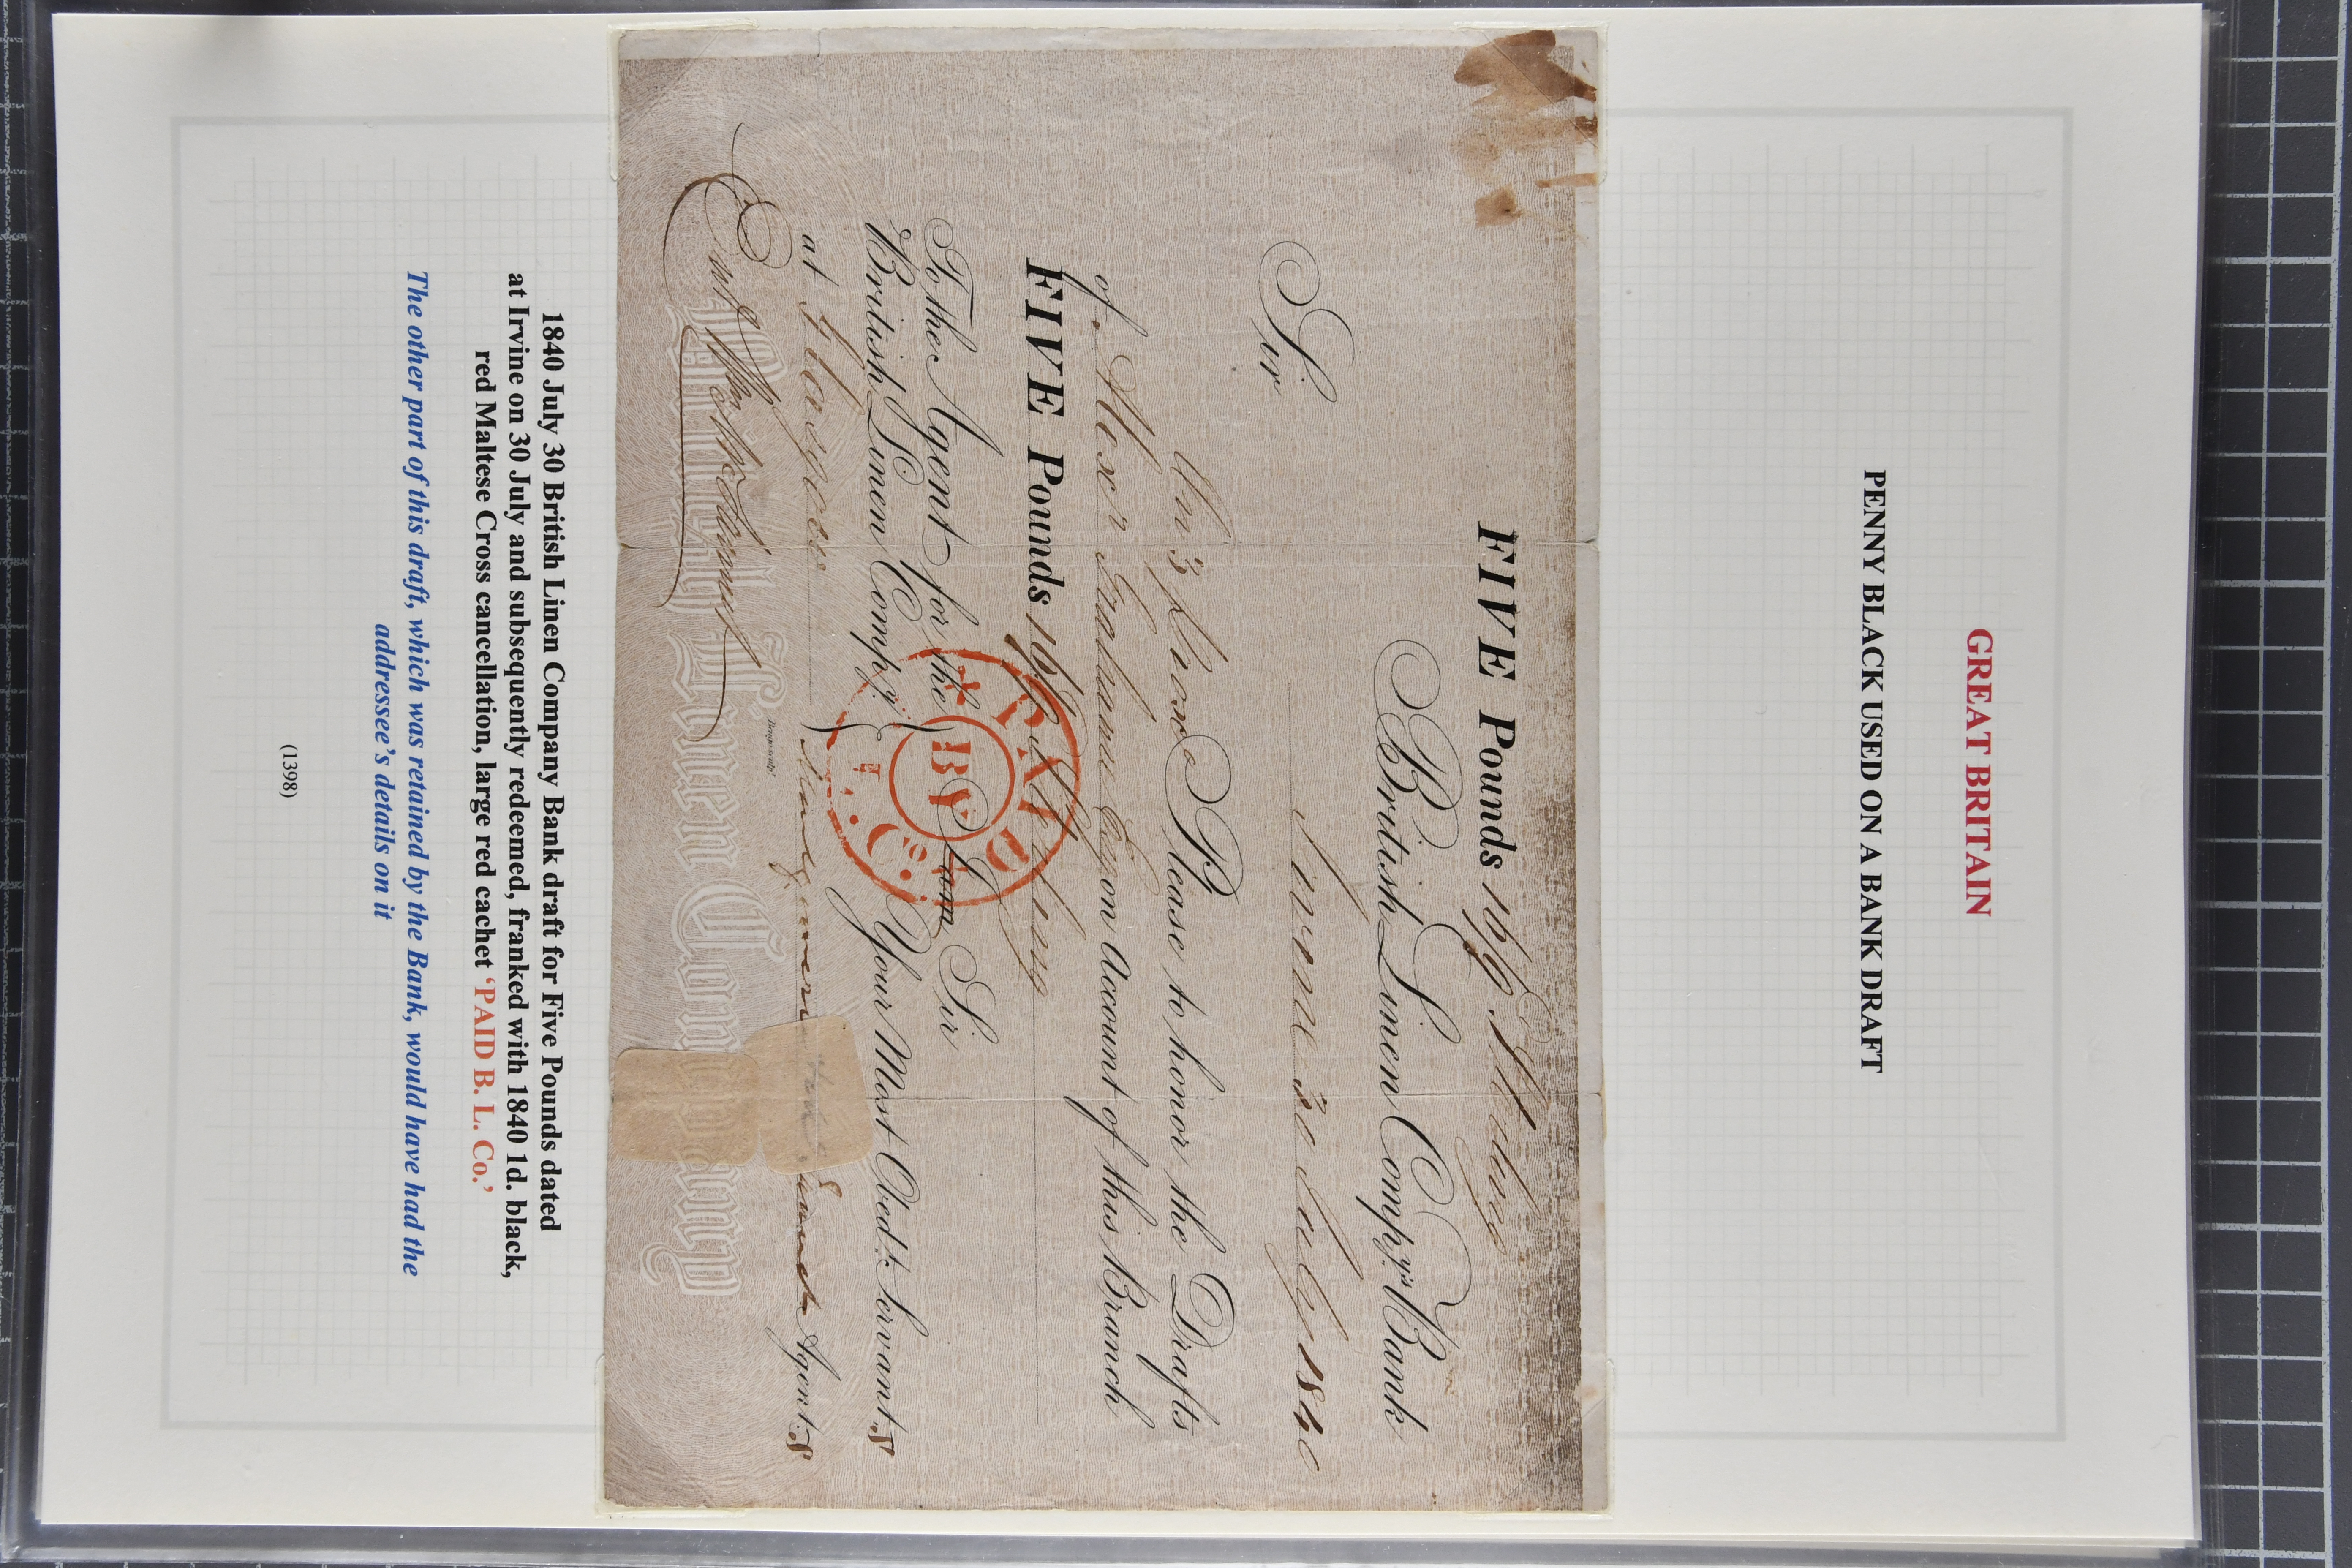 GREAT BRITAIN
PENNY BLACK USED ON A BANK DRAFT
FIVE Pounds
British Linen Comp.y's Bank
Irvine 30 July 1840
Sir
Please to honor the Drafts
of on Account of this Branch
FIVE Pounds
To the Agent for the
British Linen Comp.y
at Glasgow
I am Sir
Your Most Obed.t Servant.s
Agent.s
PAID
BY
B. L. Co.
British Linen Company
1840 July 30 British Linen Company Bank draft for Five Pounds dated
at Irvine on 30 July and subsequently redeemed, franked with 1840 1d. black,
red Maltese Cross cancellation, large red cachet ‘PAID B. L. Co.’
The other part of this draft, which was retained by the Bank, would have had the
addressee’s details on it
(1398)